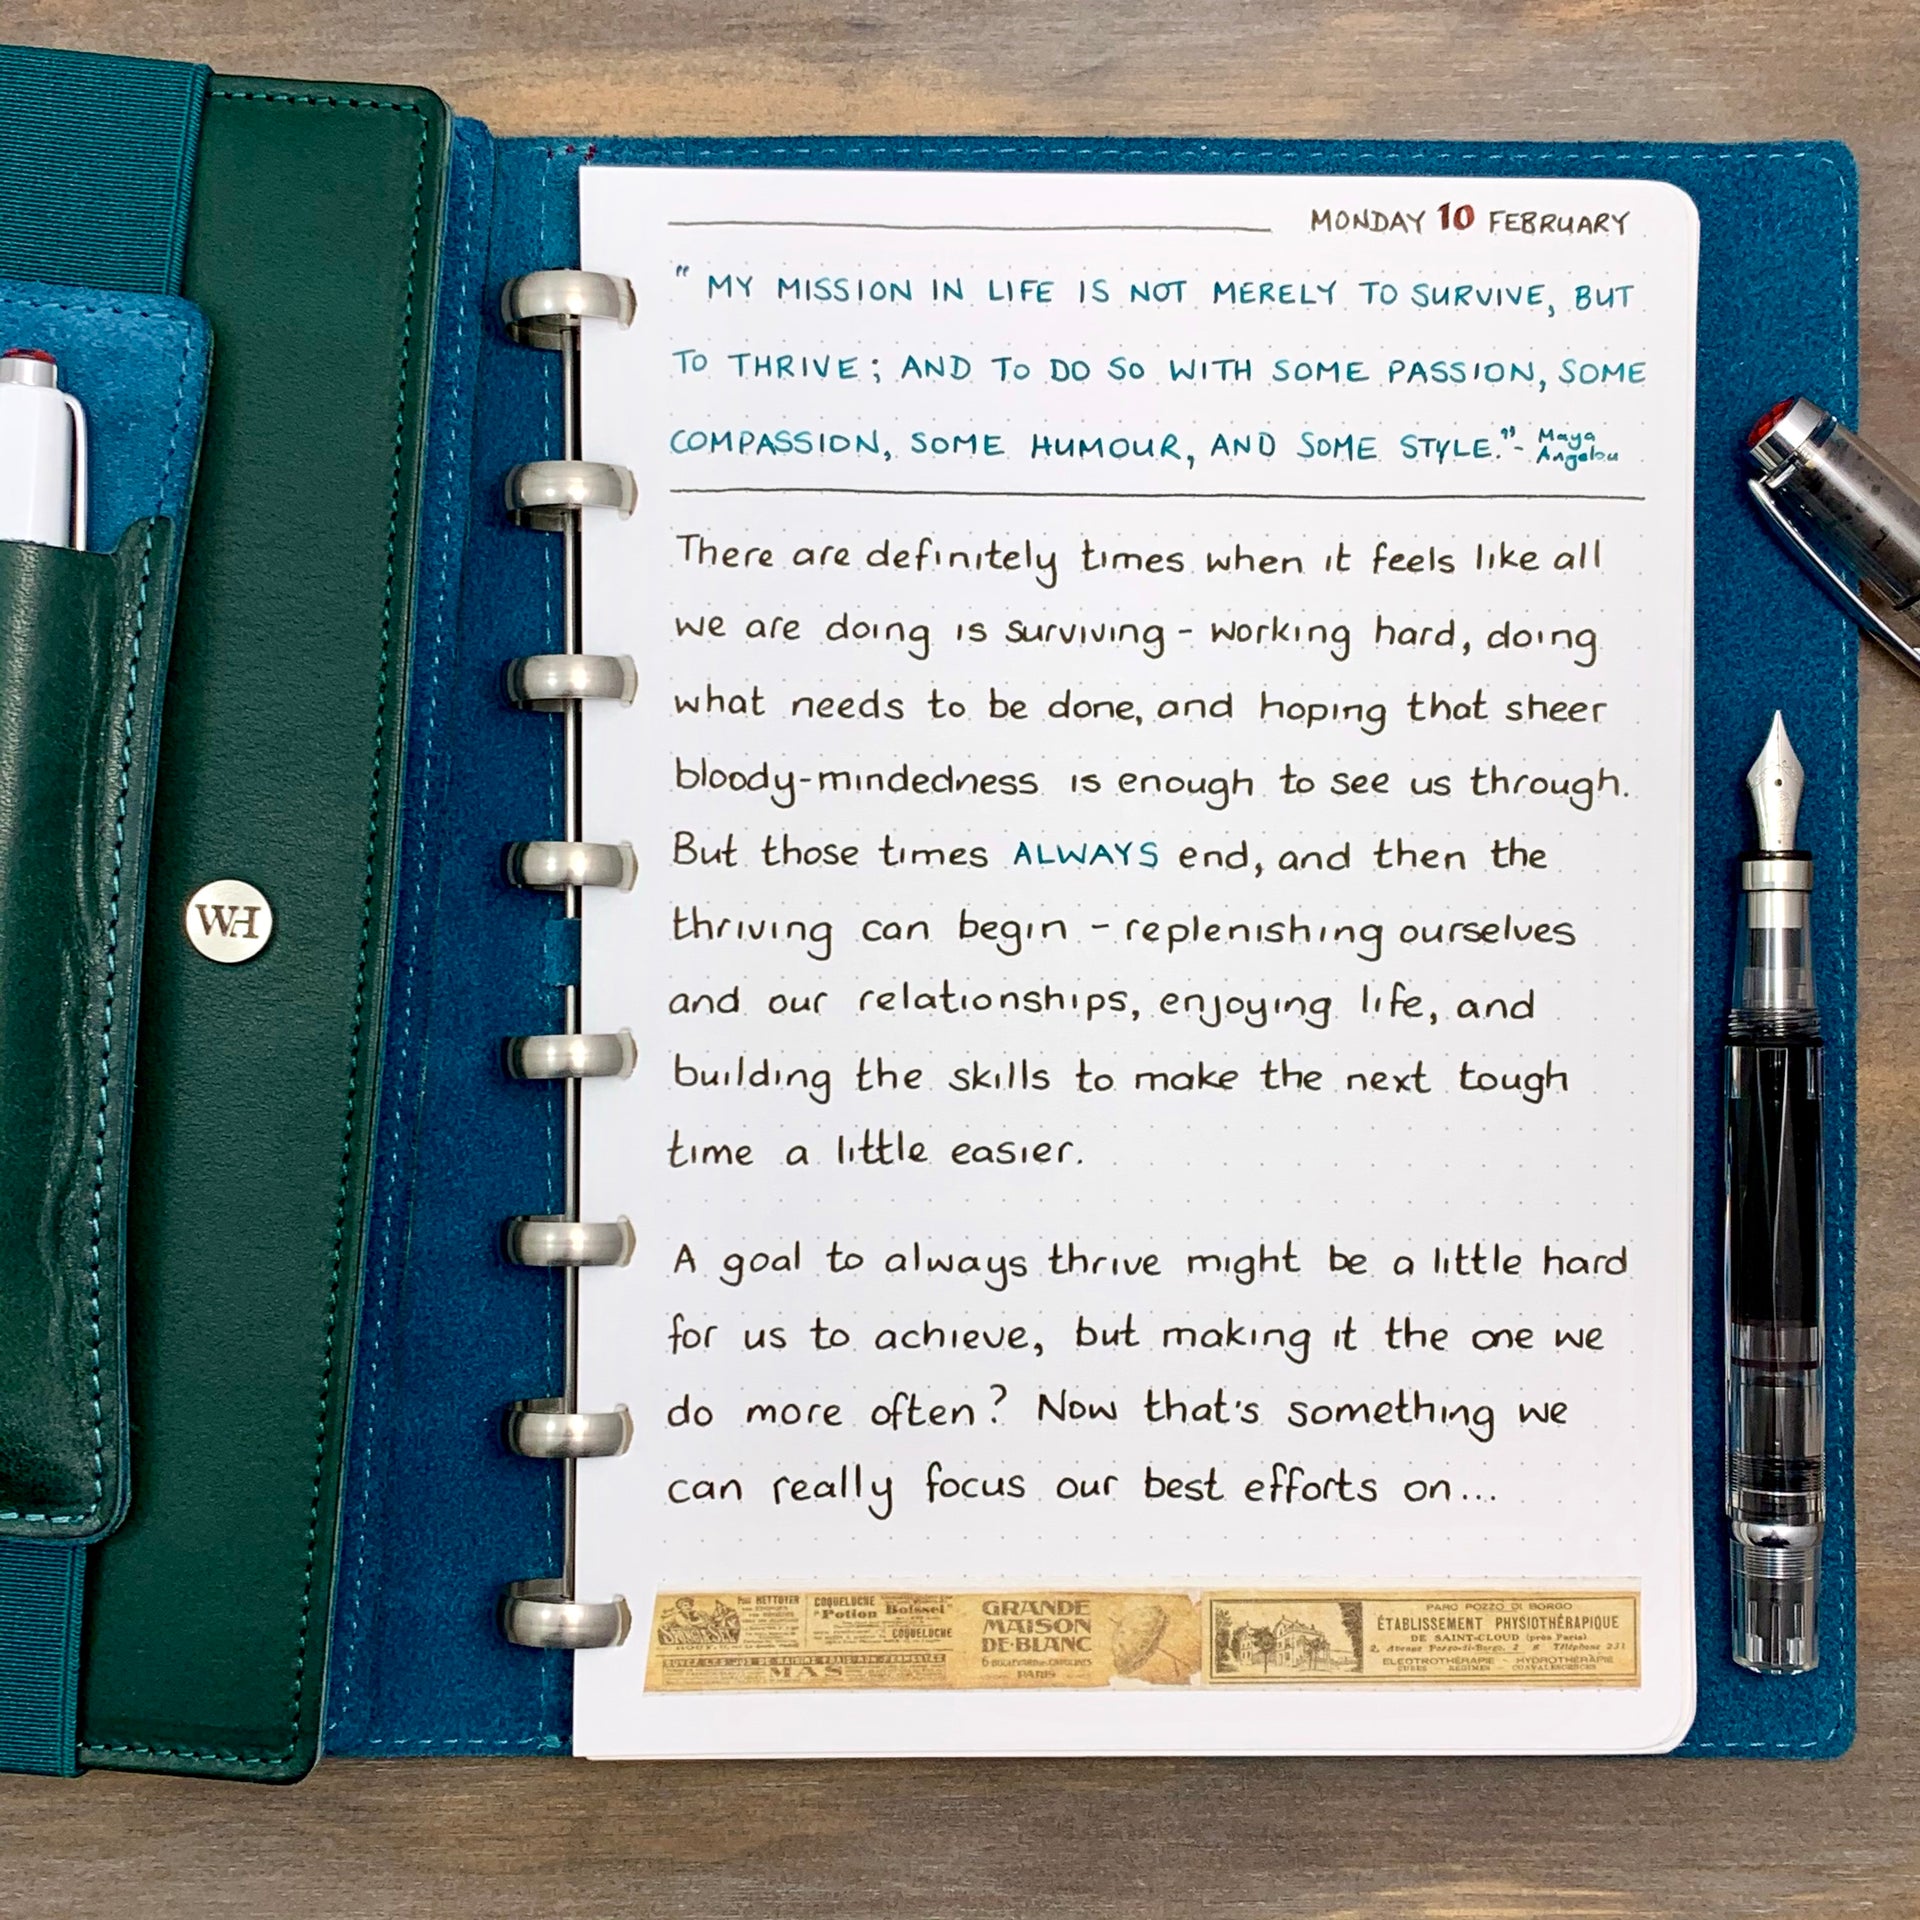 MONDAY 10 FEBRUARY
" MY MISSION IN LIFE IS NOT MERELY TO SURVIVE, BUT
TO THRIVE; AND TO DO SO WITH SOME PASSION, SOME
COMPASSION, SOME HUMOUR, AND SOME STYLE." - Maya Angelou
There are definitely times when it feels like all
we are doing is surviving - working hard, doing
what needs to be done, and hoping that sheer
bloody-mindedness is enough to see us through.
But those times ALWAYS end, and then the
thriving can begin - replenishing ourselves
and our relationships, enjoying life, and
building the skills to make the next tough
time a little easier.
A goal to always thrive might be a little hard
for us to achieve, but making it the one we
do more often? Now that's something we
can really focus our best efforts on...
WH
NETTOYER
COQUELUCHE
"Potion Boissel"
COQUELUCHE
MAS
GRANDE
MAISON
DE·BLANC
PARIS
PARC POZZO DI BORGO
ÉTABLISSEMENT PHYSIOTHÉRAPIQUE
DE SAINT-CLOUD (près Paris)
ELECTROTHÉRAPIE - HYDROTHÉRAPIE